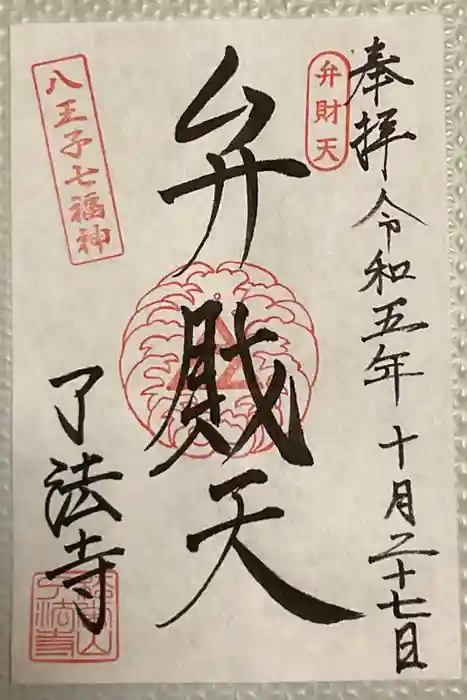 奉拝 令和五年十月二十七日
弁財天
弁財天
八王子七福神
了法寺
了法寺